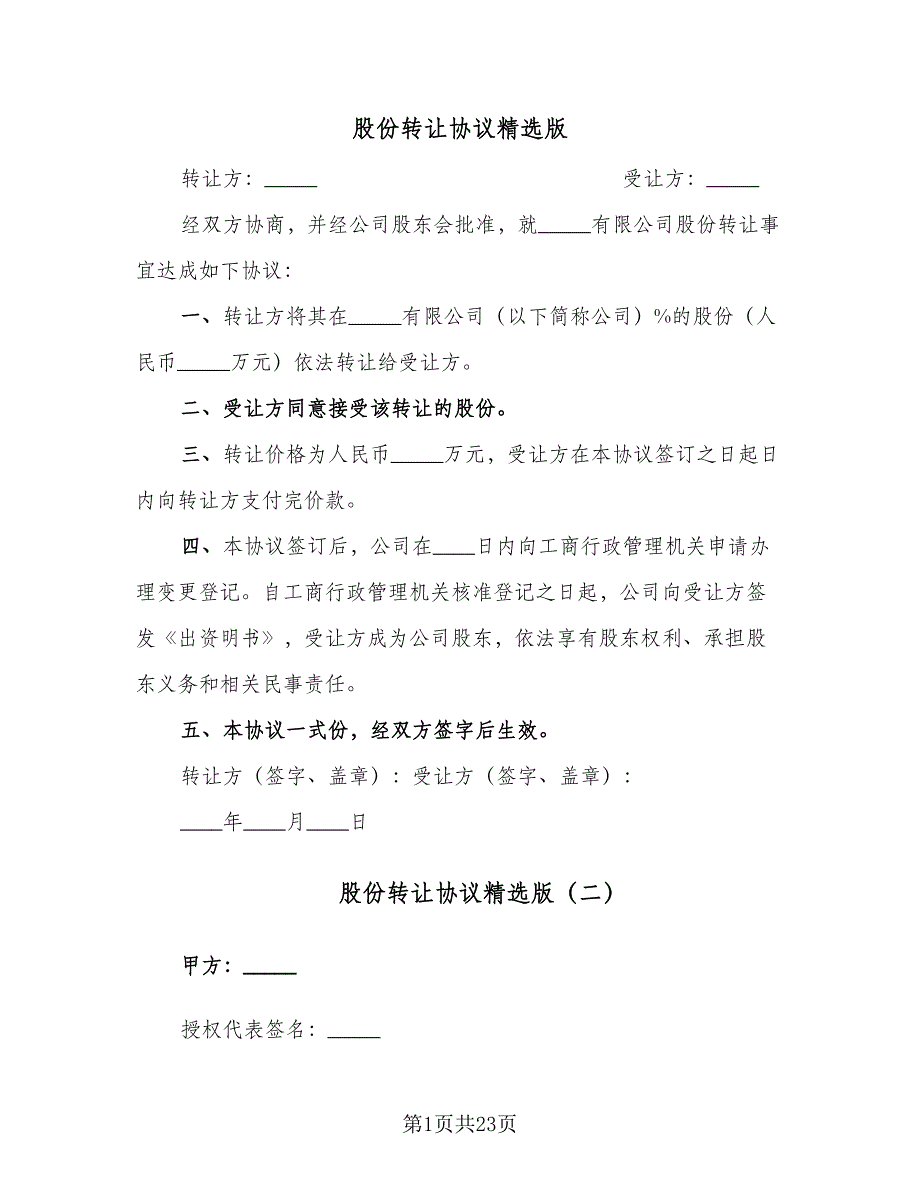 股份转让协议精选版
转让方：_____ 受让方：_____
经双方协商，并经公司股东会批准，就_____有限公司股份转让事
宜达成如下协议：
一、转让方将其在_____有限公司（以下简称公司）%的股份（人
民币_____万元）依法转让给受让方。
二、受让方同意接受该转让的股份。
三、转让价格为人民币_____万元，受让方在本协议签订之日起日
内向转让方支付完价款。
四、本协议签订后，公司在____日内向工商行政管理机关申请办
理变更登记。自工商行政管理机关核准登记之日起，公司向受让方签
发《出资明书》，受让方成为公司股东，依法享有股东权利、承担股
东义务和相关民事责任。
五、本协议一式份，经双方签字后生效。
转让方（签字、盖章）：受让方（签字、盖章）：
____年____月____日
股份转让协议精选版（二）
甲方：_____
授权代表签名：_____
第1页共23页